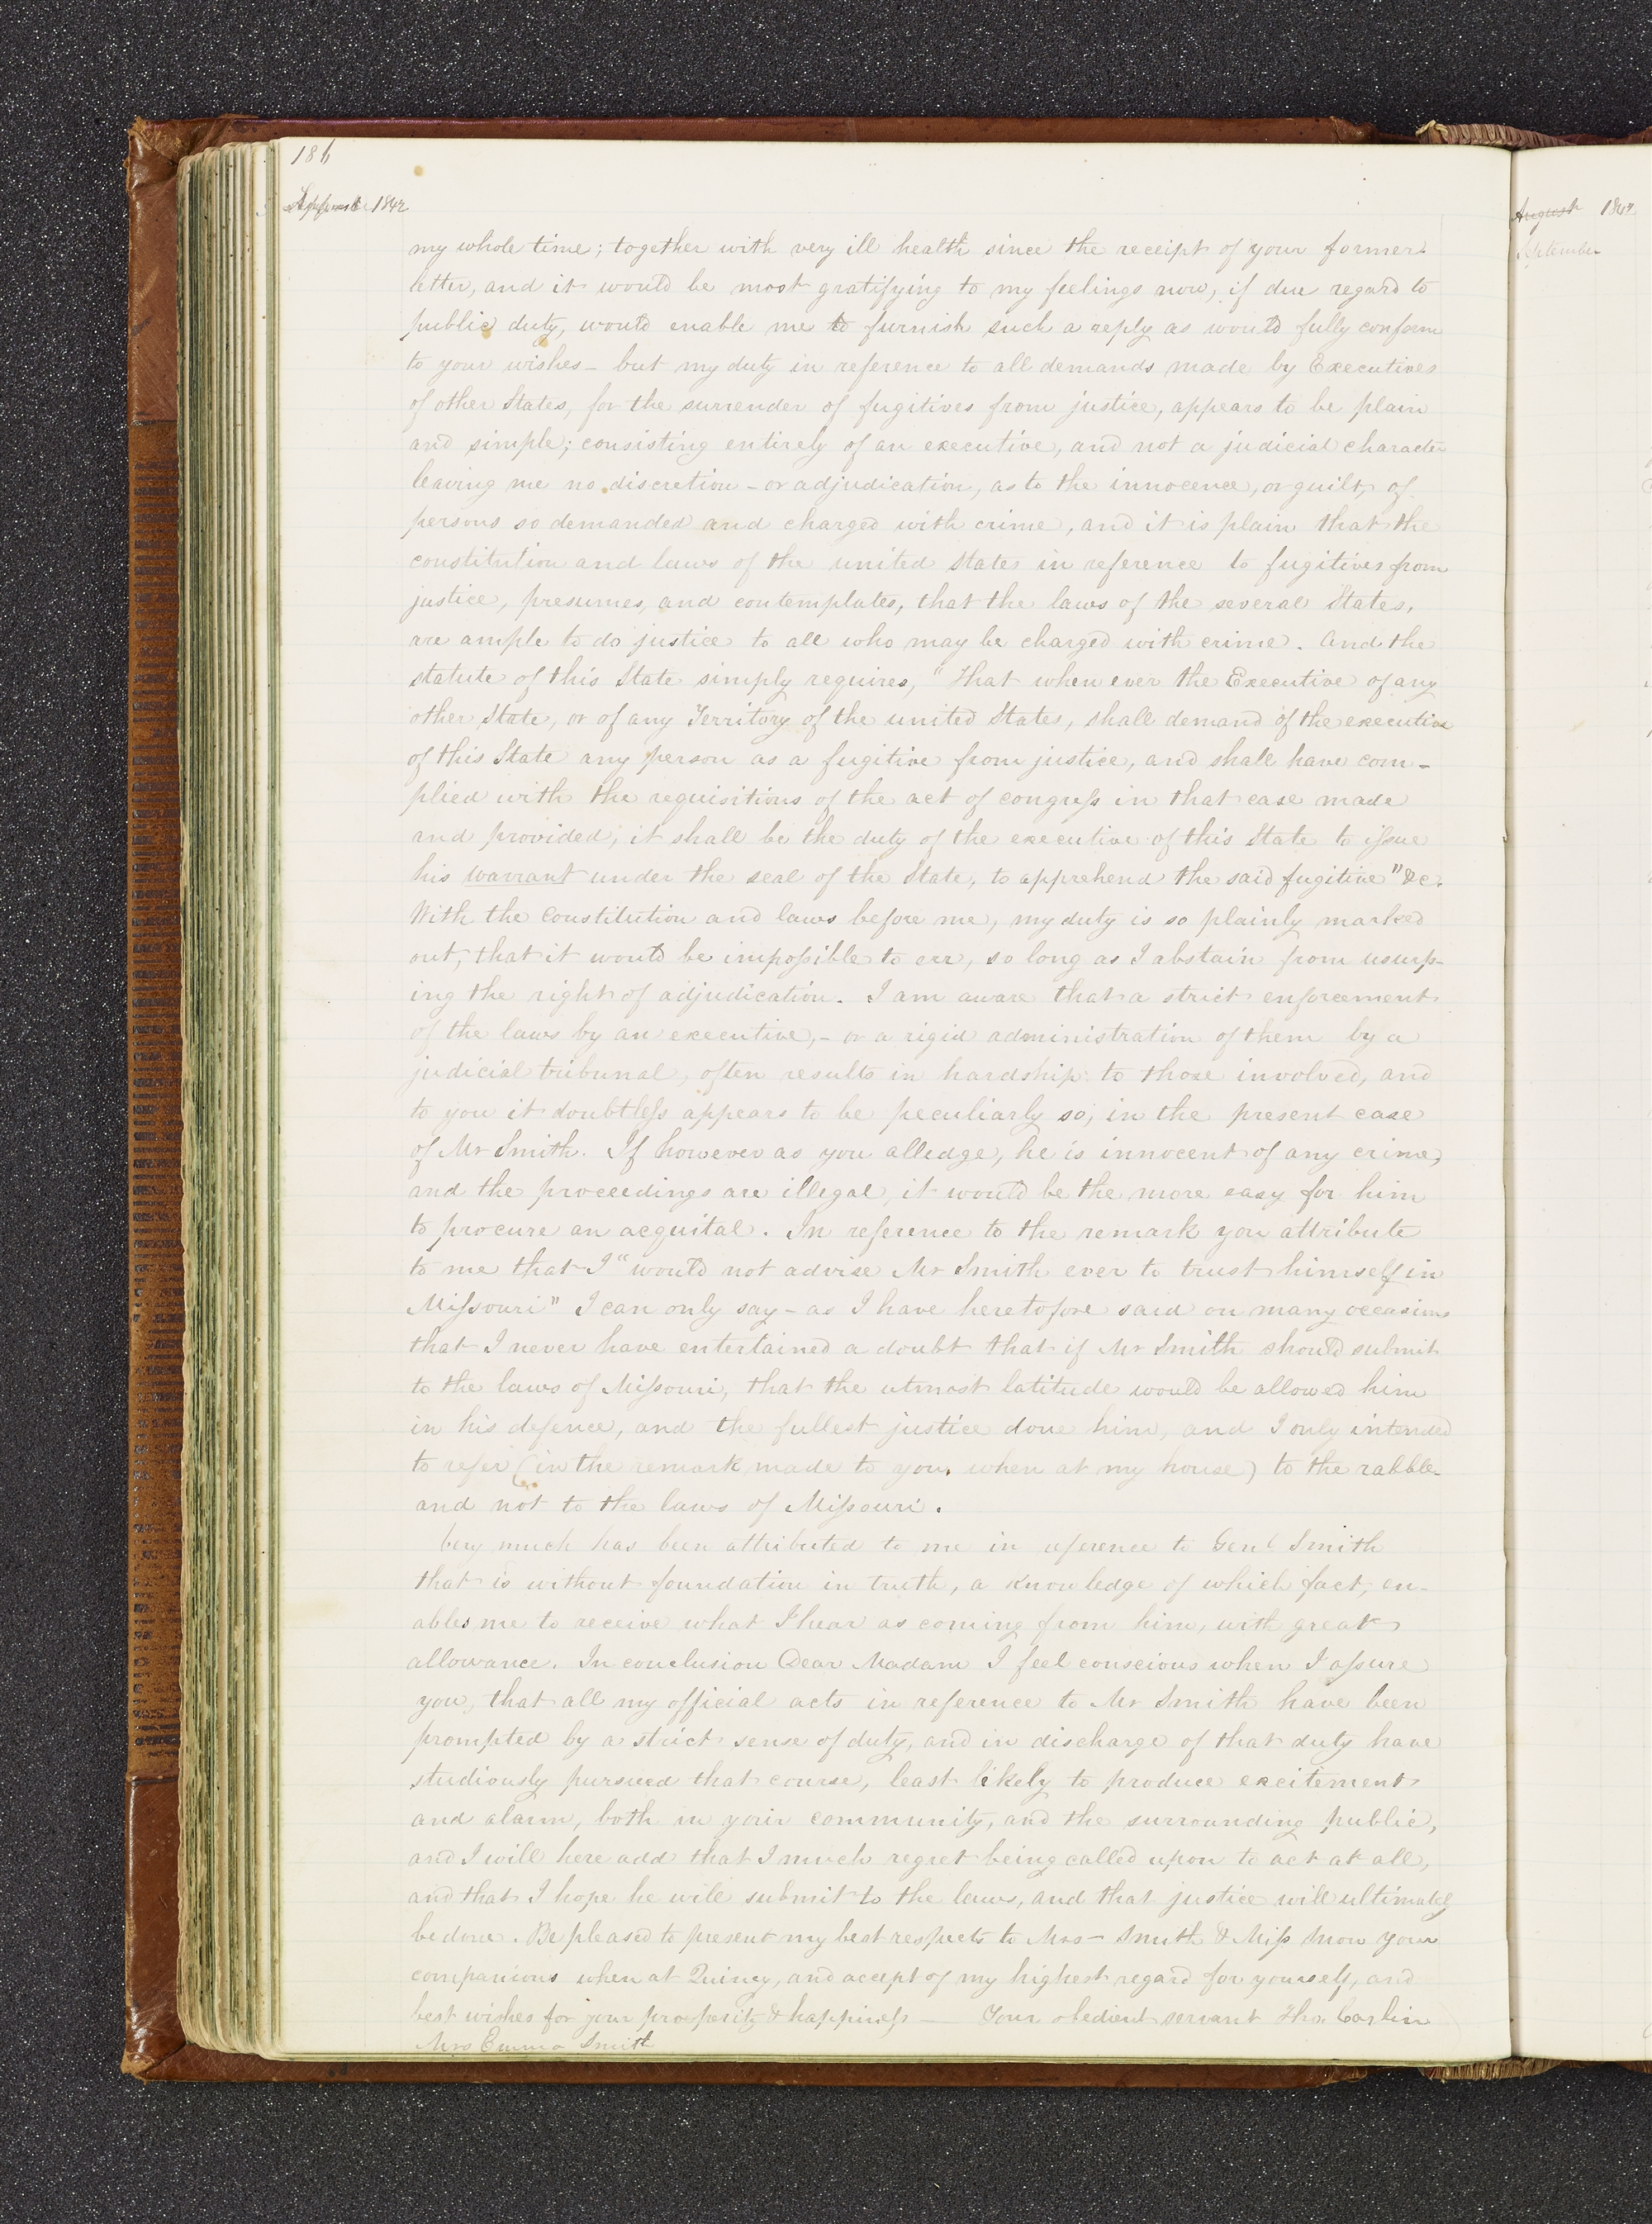 186
1842
my whole time; together with very ill health since the receipt of your former
letter, and it would be most gratifying to my feelings now, if due regard to
public duty, would enable me to furnish such a reply as would fully conform
to your wishes - but my duty in reference to all demands made by Executives
of other States, for the surrender of fugitives from justice, appears to be plain
and simple; consisting entirely of an executive, and not a judicial character
leaving me no discretion - or adjudication, as to the innocence, or guilt, of
persons so demanded and charged with crime, and it is plain that the
constitution and laws of the united States in reference to fugitives from
justice, presumes, and contemplates, that the laws of the several States,
are ample to do justice to all who may be charged with crime. And the
statute of this State simply requires, "That when ever the Executive of any
other State, or of any Territory of the united States, shall demand of the executive
of this State any person as a fugitive from justice, and shall have com-
plied with the requisitions of the act of congress in that case made
and provided, it shall be the duty of the executive of this State to issue
his warrant under the seal of the State, to apprehend the said fugitive" &c.
With the Constitution and laws before me, my duty is so plainly marked
out, that it would be impossible to err, so long as I abstain from usurp-
ing the right of adjudication. I am aware that a strict enforcement
of the laws by an executive, - or a rigid administration of them by a
judicial tribunal, often results in hardship to those involved, and
to you it doubtless appears to be peculiarly so, in the present case
of Mr Smith. If however as you alledge, he is innocent of any crime,
and the proceedings are illegal, it would be the more easy for him
to procure an acquital. In reference to the remark you attribute
to me that I "would not advise Mr Smith ever to trust himself in
Missouri" I can only say - as I have heretofore said on many occasions
that I never have entertained a doubt that if Mr Smith should submit
to the laws of Missouri, that the utmost latitude would be allowed him
in his defence, and the fullest justice done him, and I only intended
to refer (in the remark made to you, when at my house) to the rabble
and not to the laws of Missouri.
Very much has been attributed to me in reference to Genl Smith
that is without foundation in truth, a knowledge of which fact, en-
ables me to receive what I hear as coming from him, with great
allowance. In conclusion Dear Madam I feel conscious when I assure
you, that all my official acts in reference to Mr Smith have been
prompted by a strict sense of duty, and in discharge of that duty have
studiously pursued that course, least likely to produce excitement
and alarm, both in your community, and the surrounding public,
and I will here add that I much regret being called upon to act at all,
and that I hope he will submit to the laws, and that justice will ultimately
be done. Be pleased to present my best respects to Mrs - Smith & Miss Snow your
companions when at Quincy, and accept of my highest regard for yourself, and
best wishes for your prosperity & happiness — Your obedient servant Tho. Carlin
Mrs Emma Smith
August 1842
September